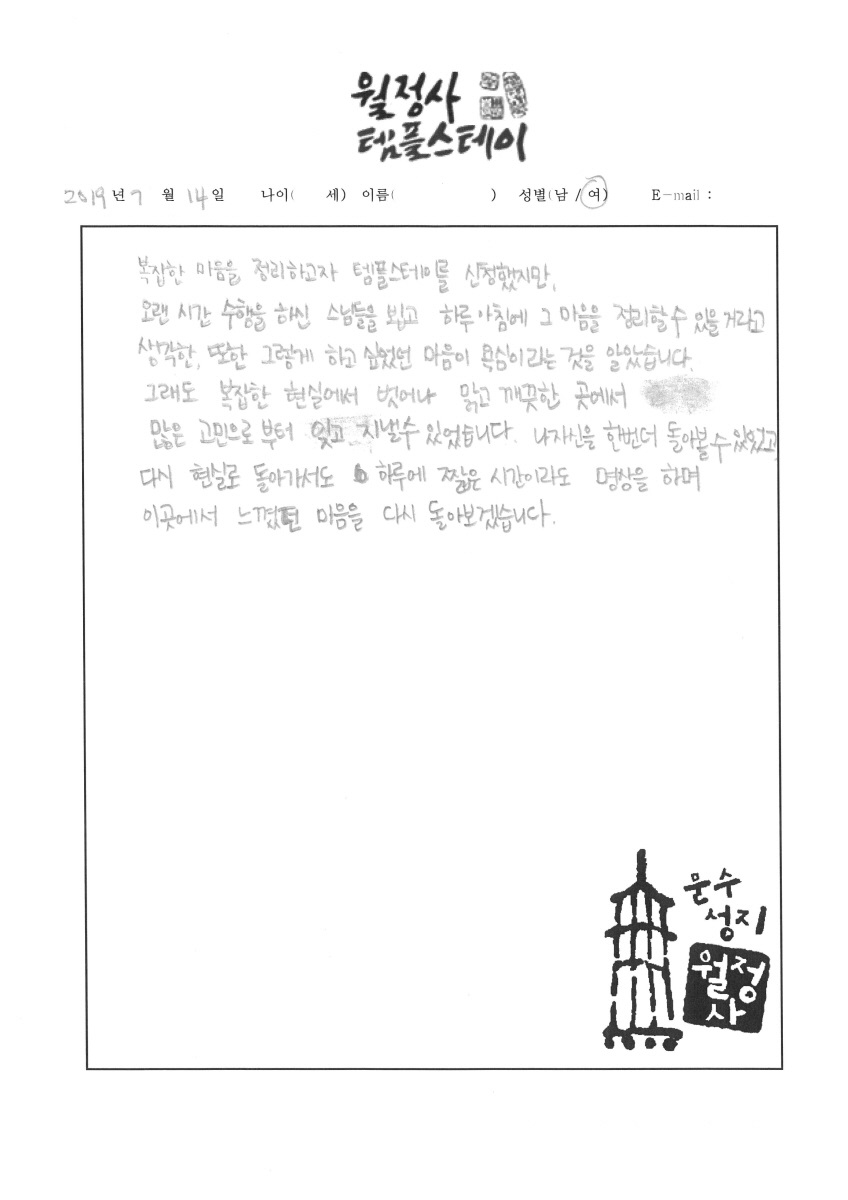 월정사
템플스테이
2019년 7월 14일 나이( 세) 이름( ) 성별(남 / 여) E-mail :
복잡한 마음을 정리하고자 템플스테이를 신청했지만,
오랜 시간 수행을 하신 스님들을 뵙고 하루 아침에 그 마음을 정리할 수 있을 거라고
생각한, 또한 그렇게 하고 싶었던 마음이 욕심이라는 것을 알았습니다.
그래도 복잡한 현실에서 벗어나 맑고 깨끗한 곳에서
많은 고민으로 부터 잊고 지낼수 있었습니다. 나자신을 한번더 돌아볼 수 있었고
다시 현실로 돌아가서도 하루에 짧은 시간이라도 명상을 하며
이곳에서 느꼈던 마음을 다시 돌아보겠습니다.
문수
성지
월정
사